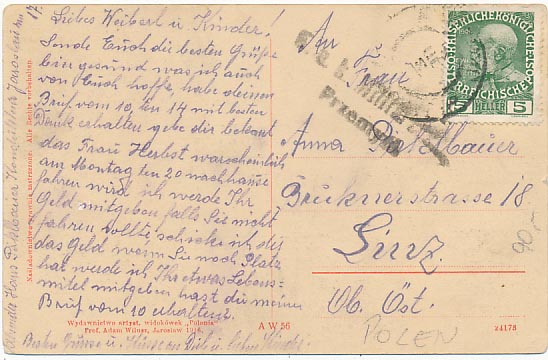 Liebes Weiberl u Kinder!
Sende Euch die besten Grüße
bin gesund was ich auch
von Euch hoffe, habe deinen
Brief vom 10, ten 14 mit besten
Danke erhalten gebe dir bekannt
das Frau Herbst warscheinlich
am Montag ten 20 nachhause
fahren wird ich werde Ihr
Geld mitgeben falls Sie nicht
fahren wollte schicke ich dir
das Geld wenn Sie noch Platz
hat werde ich Ihr etwas Lebens-
mittel mitgeben hast du meinen
Brief vom 10 erhalten?
Besten Grüsse u Küsse an Dich u liebe Kinder.
Hans Jaroslau
17
Alle Rechte vorbehalten.
Wydawnictwo artyst. widokówek „Polonia"
Prof. Adam Wilner, Jarosław 1916.
A W 56
24178
An
Frau
Anna Mauer
Brucknerstrasse 18
Linz.
Ob. Öst.
K. u. k. Militär
Przemyśl
5 HELLER 5
90,-
POLEN